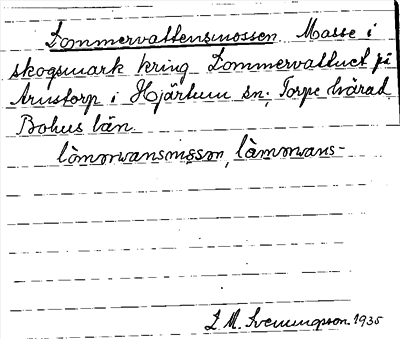 Lommervattensmossen. Mosse i
skogsmark kring Lommervattnet på
Arnstorp i Hjärtum sn; Torpe härad,
Bohus län.
lòmmwansmɵsson, lòmmwans-
L. M. Svenungsson. 1935